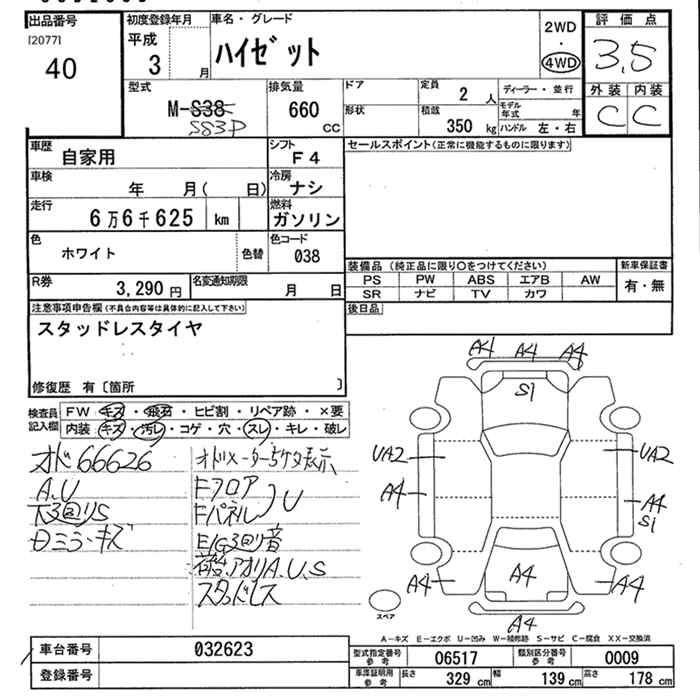 出品番号
[2077]
40
初度登録年月
平成
3 月
車名・グレード
ハイゼット
2WD
・
4WD
評価点
3.5
外装 内装
C C
型式
M-S38
S83P
排気量
660
cc
ドア
形状
定員
2 人
積載
350 kg
ディーラー・並行
モデル年式 年
ハンドル 左・右
車歴
自家用
シフト
F4
車検
年 月( 日)
冷房
ナシ
走行
6万6千625 km
燃料
ガソリン
色
ホワイト
色替
色コード
038
R券
3,290 円
名変通知期限
月 日
セールスポイント(正常に機能するものに限ります)
装備品(純正品に限り○をつけてください)
PS PW ABS エアB AW
SR ナビ TV カワ
新車保証書
有・無
後日品
注意事項申告欄(不具合内容等は具体的に記入して下さい)
スタッドレスタイヤ
修復歴 有〔箇所 〕
検査員記入欄
FW キズ・飛石・ヒビ割・リペア跡・×要
内装 キズ・汚レ・コゲ・穴・スレ・キレ・破レ
オド66626
A.U
下回りS
日ミラーキズ
オドメーター5ケタ表示
Fフロア
Fパネル
U
E/G回り音
荷台.アオリA.U.S
スタッドレス
A4 A4 A4
S1
UA2 UA2
A4 A4
S1
A4 A4 A4
A4
スペア
A-キズ E-エクボ U-凹み W-補修跡 S-サビ C-腐食 XX-交換済
車台番号
032623
登録番号
型式指定番号
参考
06517
類別区分番号
参考
0009
車庫証明用
参考
長さ 329 cm
幅 139 cm
高さ 178 cm